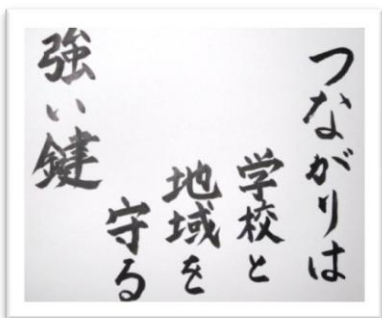 つながりは
学校と
地域を
守る
強い鍵